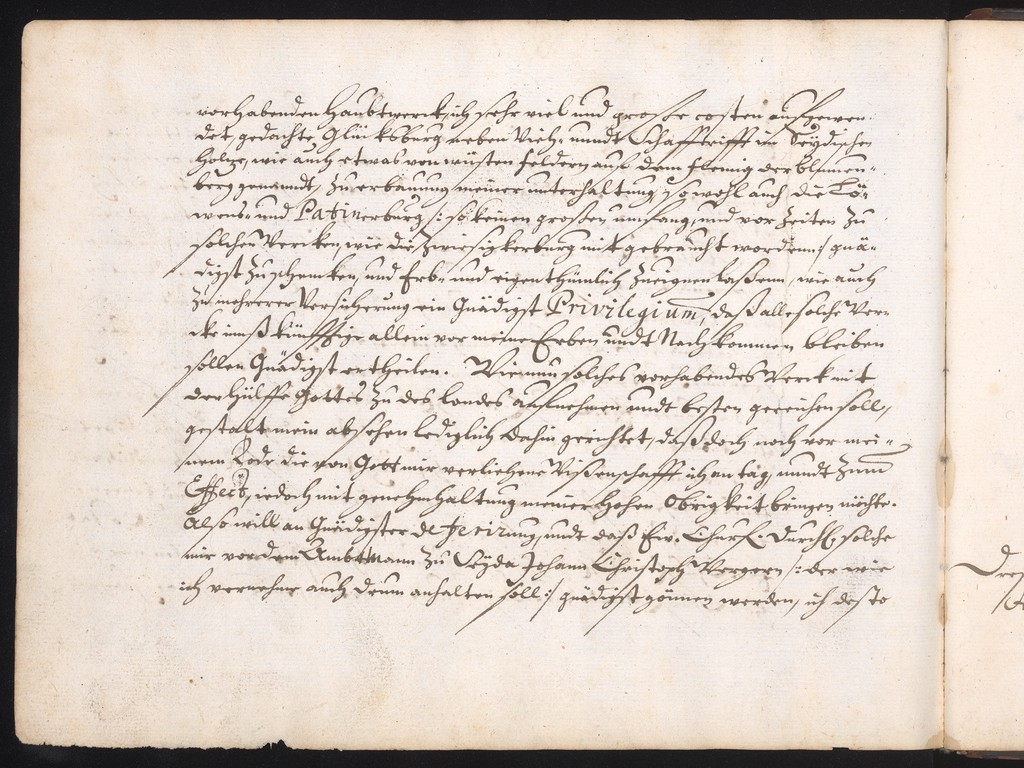 vorhabenden Haubtwerck, ich sehr viel und große costen aufgewen-
det, gedachte Glücksburg neben Vieh- unndt Schafftrifft im Seydischen
Holtze, wie auch etwas von wüsten feldern auf dem fleming der blumen-
berg genandt, zu erbauung meiner unterhaltung, so wohl auch die Lö-
wens- und Patinerburg /: so keinen großen umfang, und vor Zeiten zu
solchen Wercken, wie die Zwiesigkerburg mit gebraucht worden :/ gnä-
digst zu schencken, und Erb- und eigenthümlich zueignen laßenn, wie auch
zu mehrerer Versicherung ein Gnädigst Privilegium, daß alle solche Wer-
cke innß künfftige allein vor meine Erben undt Nachkommen bleiben
sollen Gnädigst ertheilen. Wie nun solches vorhabendes Werck mit
der hülffe Gottes zu des landes aufnehmen undt besten gereichen soll,
gestalt mein absehen lediglich dahin gerichtet, daß doch noch vor mei-
nem Tode die von Gott mir verliehene Wißenschafft ich an tag, unndt zum
Effect, iedoch mit genehmhaltung meiner Hohen Obrigkeit bringen möchte.
Also will an Gnädigster deferirung, undt daß Ew. Churf. Durchl. solche
mir vor dem Ambtmann zu Seyda Johann Christoph Wergern /: der wie
ich vernehme auch drum anhalten soll :/ gnädigst gönnen werden, ich desto